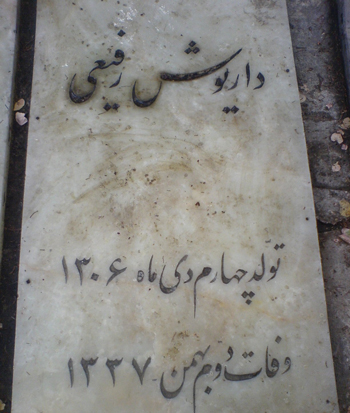 داریوش رفیعی
تولد چهارم دی ماه ۱۳۰۶
وفات دوم بهمن ۱۳۳۷